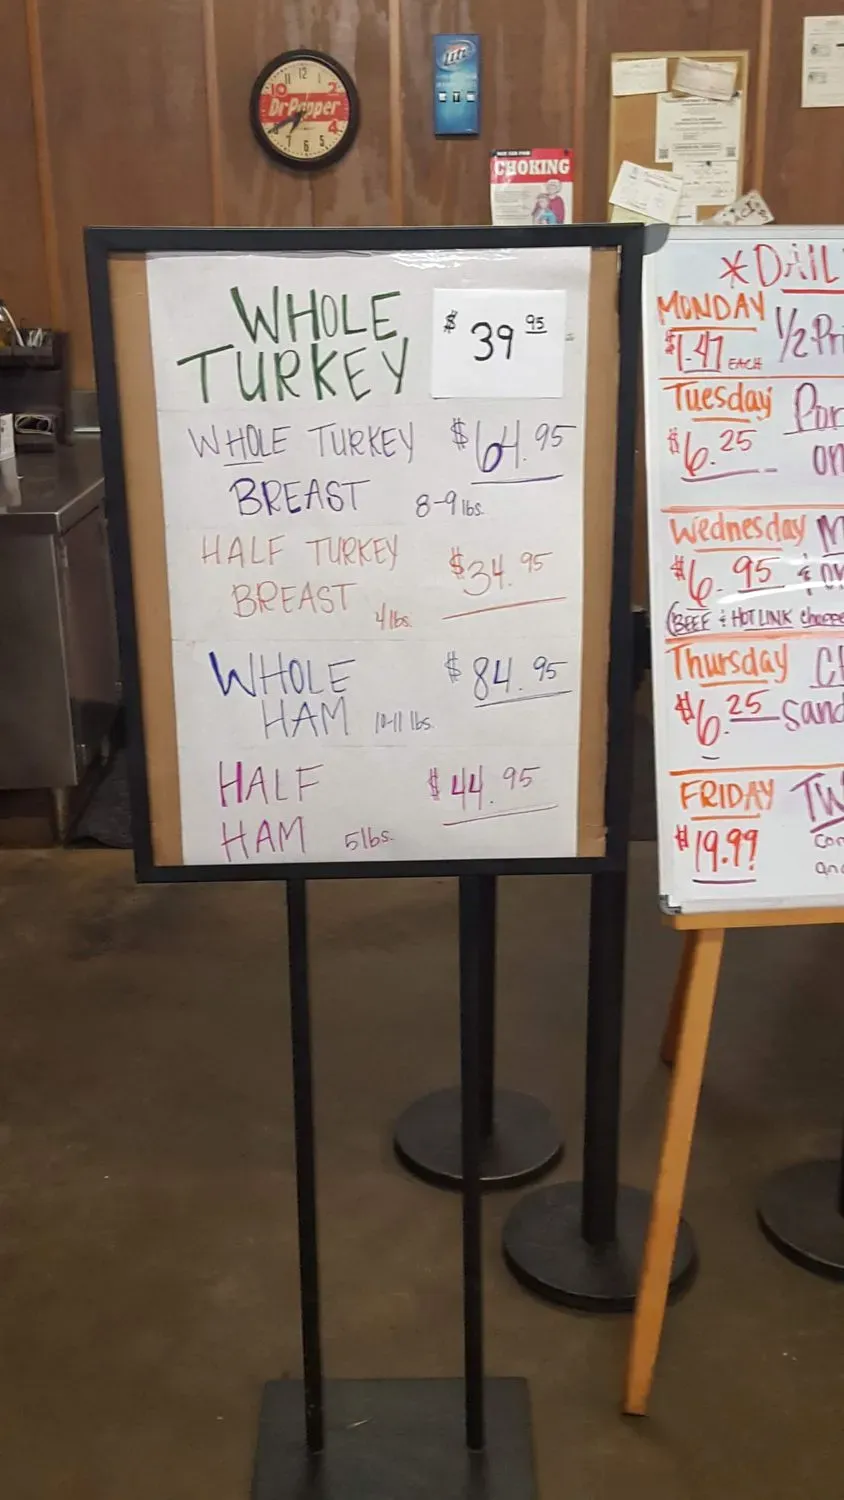 12
10
2
Dr Pepper
4
7
6
5
Lite
CHOKING
WHOLE
TURKEY
$39 95
WHOLE TURKEY $64.95
BREAST 8-9 lbs.
HALF TURKEY $34.95
BREAST 4 lbs.
WHOLE $84.95
HAM 10-11 lbs.
HALF $44.95
HAM 5 lbs.
*DAIL
MONDAY 1/2 Pri
$1.47 EACH
Tuesday Por
$6.25 on
Wednesday M
$6.95 &
(BEEF & HOT LINK
Thursday
$6.25 sand
FRIDAY TW
$19.99
and